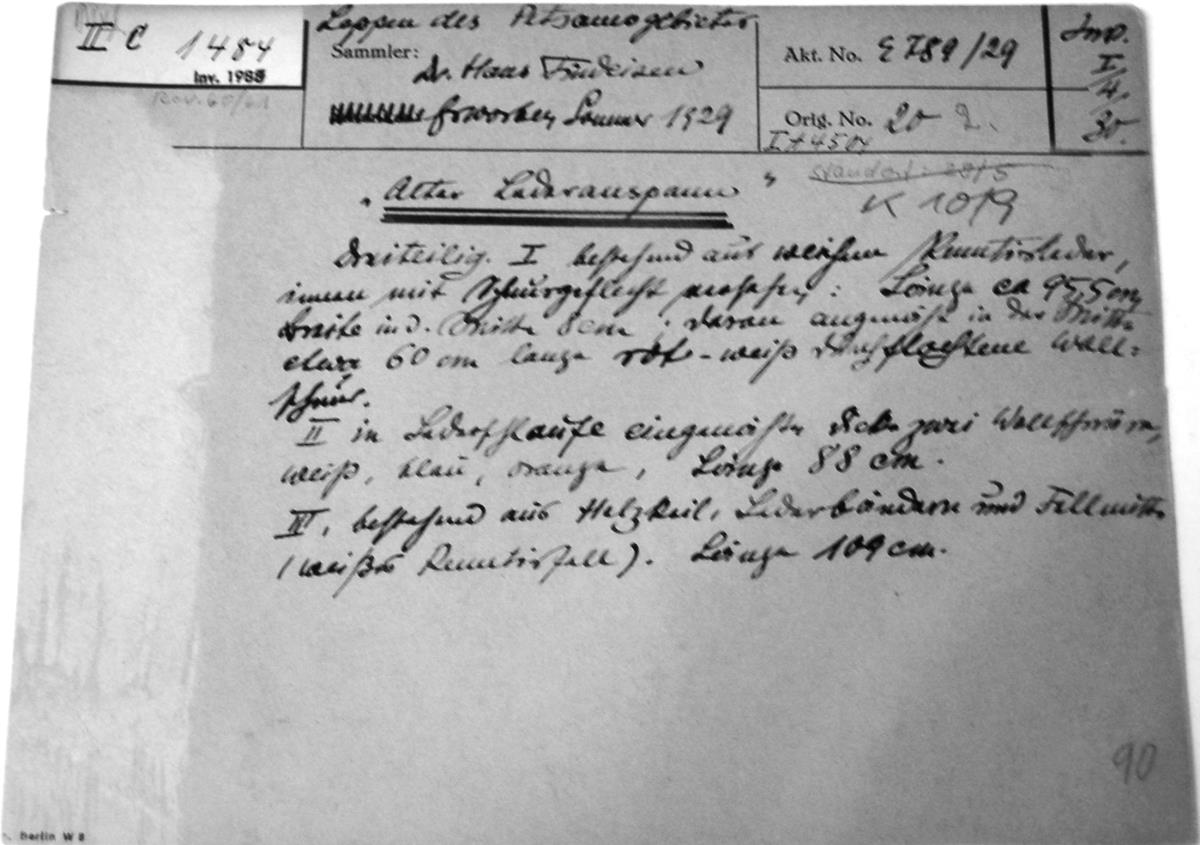 II C 1484
Inv. 1988
Rev. 60/61
Lappen des Petsamogebietes
Sammler:
Dr. Hans Findeisen
Erworben Sommer 1929
Akt. No. E 789/29
Orig. No. 20
I A 4504
Inv.
I
4.
30.
Standort: 2815
K 1019
„Alter Lederanspann"
Dreiteilig. I bestehend aus weichem Renntierleder,
innen mit Schnurgeflecht versehen: Länge ca 95,5 cm,
Breite in d. Mitte 8 cm; daran angenäht in der Mitte
etwa 60 cm lange rot-weiß durchflochtene Woll-
schnur.
II in Lederschlaufe eingenähte dicke zwei Wollschnüre,
weiß, blau, orange, Länge 88 cm.
III, bestehend aus Holzkeil, Lederbändern und Fellmitte
(weißes Renntierfell). Länge 109 cm.
90
Berlin W 8